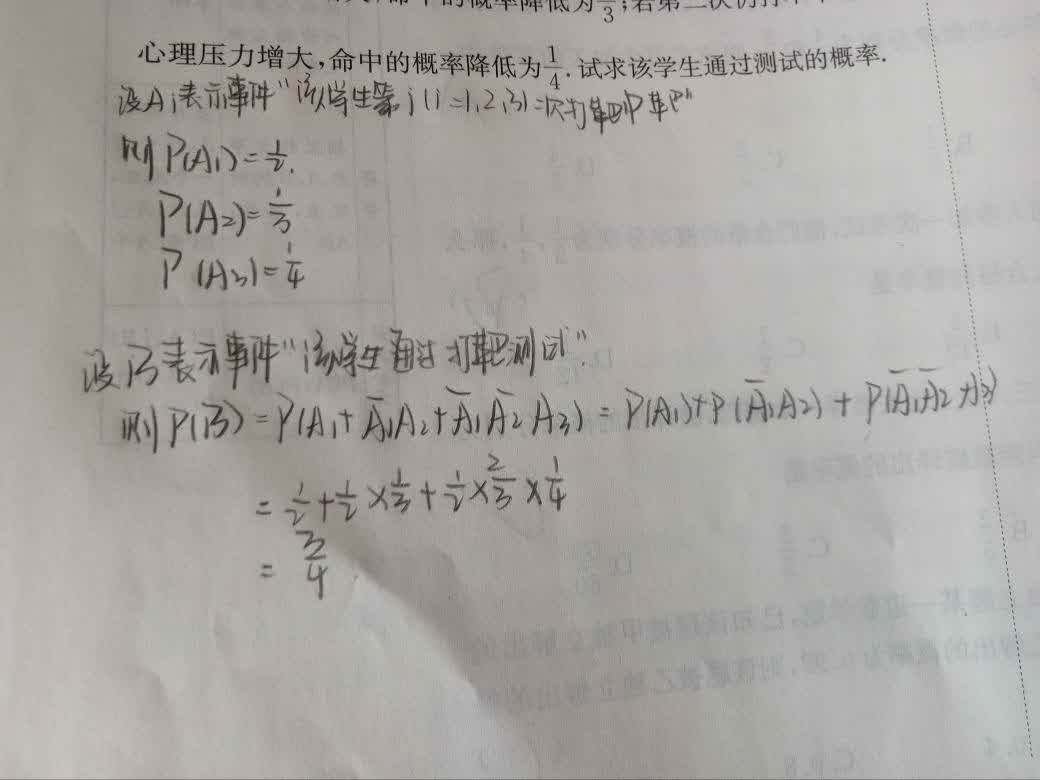 命中的概率降低为1/3;若第二次仍打
心理压力增大,命中的概率降低为1/4.试求该学生通过测试的概率.
设Ai表示事件“该学生第i(i=1,2,3)次打靶中靶”
则P(A₁)=1/2.
P(A₂)=1/3
P(A₃)=1/4
设B表示事件“该学生通过打靶测试”.
则P(B)=P(A₁+A̅₁A₂+A̅₁A̅₂A₃)=P(A₁)+P(A̅₁A₂)+P(A̅₁A̅₂A₃)
=1/2+1/2×1/3+1/2×2/3×1/4
=3/4.